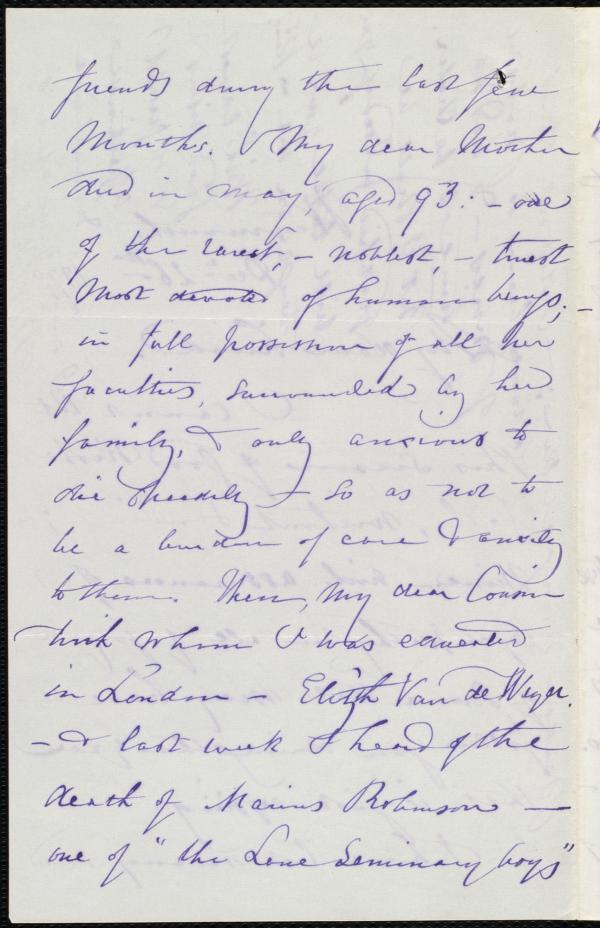 friends during the last few
Months. My dear Mother
died in May, aged 93: - one
of the rarest, - noblest, - truest
Most devoted of human beings; -
in full possession of all her
faculties, surrounded by her
family, & only anxious to
die speedily - so as not to
be a burden of care & anxiety
to them. Then, my dear Cousin
with whom I was educated
in London - Elizth Van de Weyer.
- & last week I heard of the
death of Marius Robinson -
one of "the Lane Seminary boys"